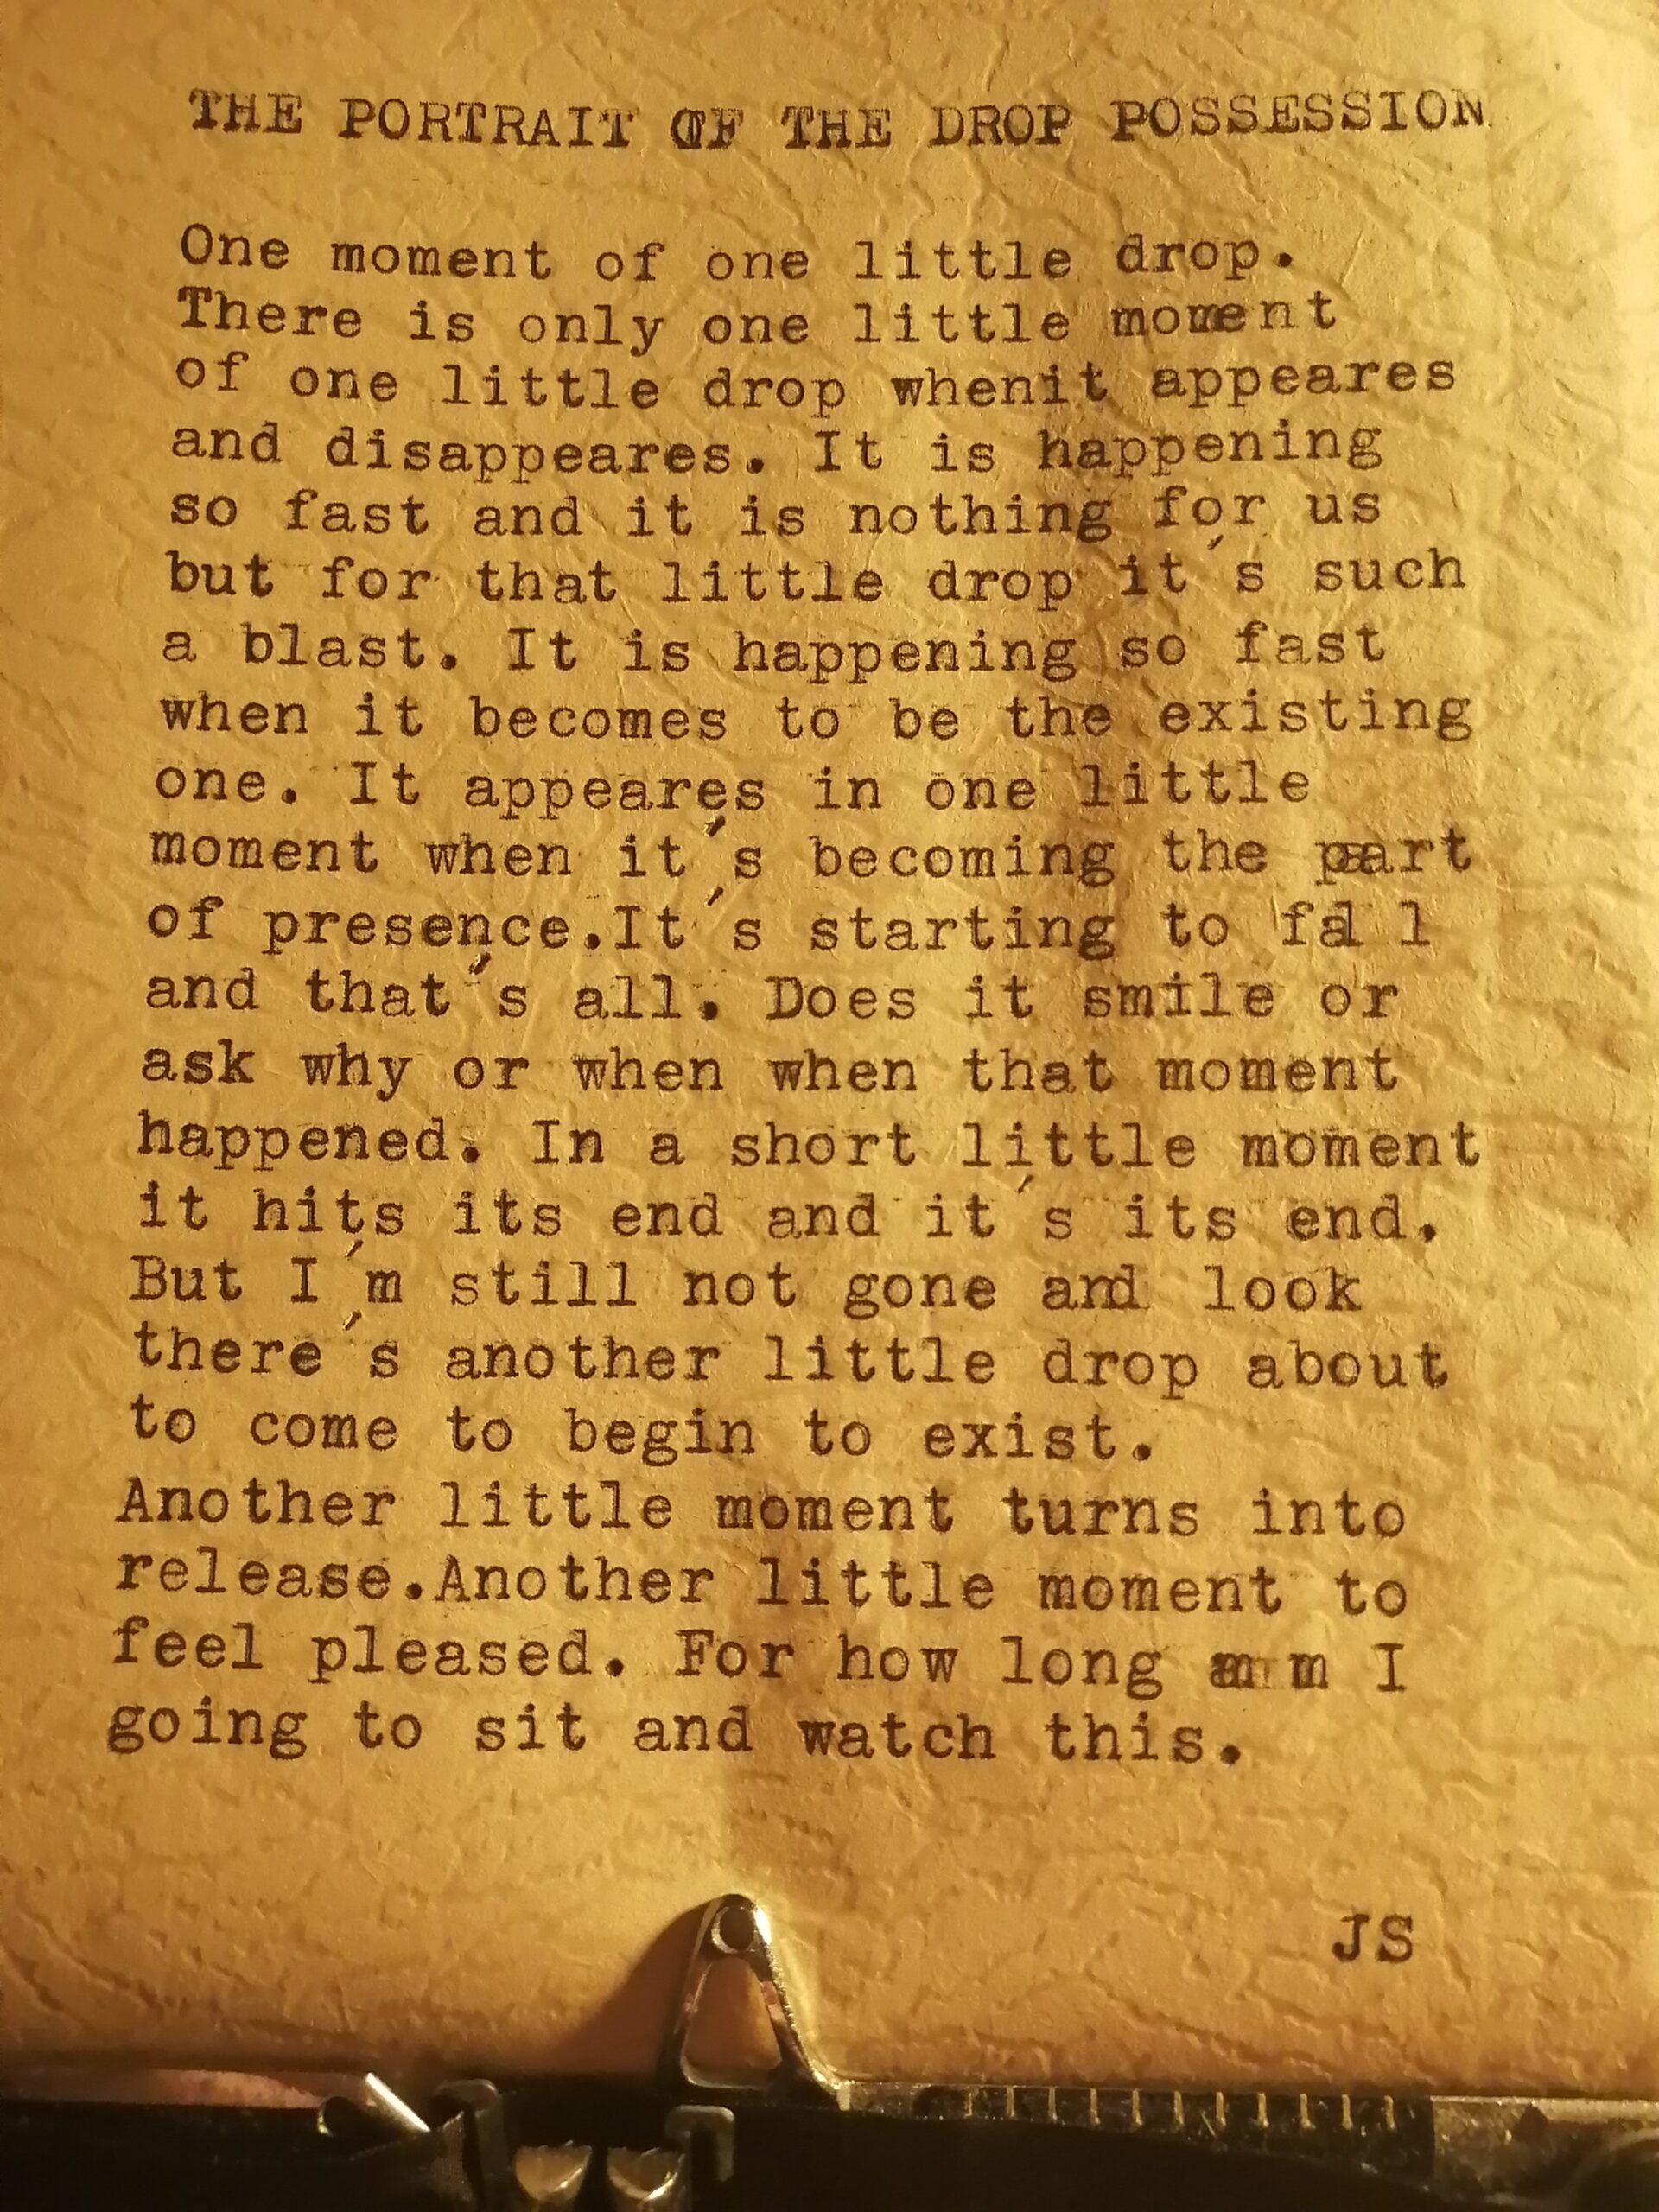 THE PORTRAIT OF THE DROP POSSESSION
One moment of one little drop.
There is only one little moment
of one little drop whenit appeares
and disappeares. It is happening
so fast and it is nothing for us
but for that little drop it´s such
a blast. It is happening so fast
when it becomes to be the existing
one. It appeares in one little
moment when it´s becoming the part
of presence.It´s starting to fal l
and that´s all. Does it smile or
ask why or when when that moment
happened. In a short little moment
it hits its end and it´s its end.
But I´m still not gone and look
there´s another little drop about
to come to begin to exist.
Another little moment turns into
release.Another little moment to
feel pleased. For how long am m I
going to sit and watch this.
JS